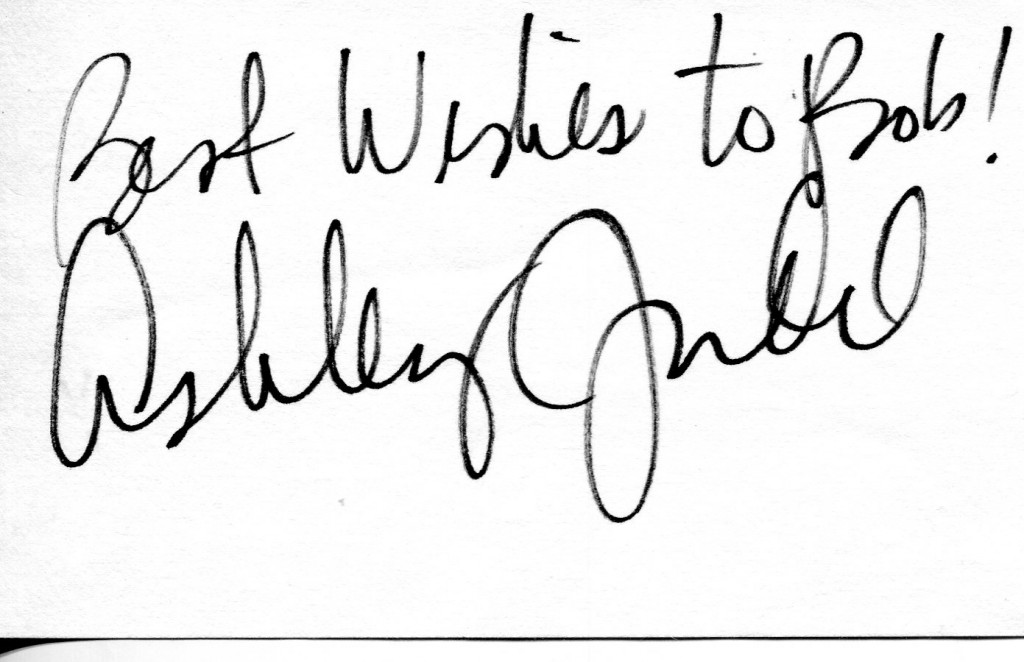 Best Wishes to Bob!
Ashley Judd